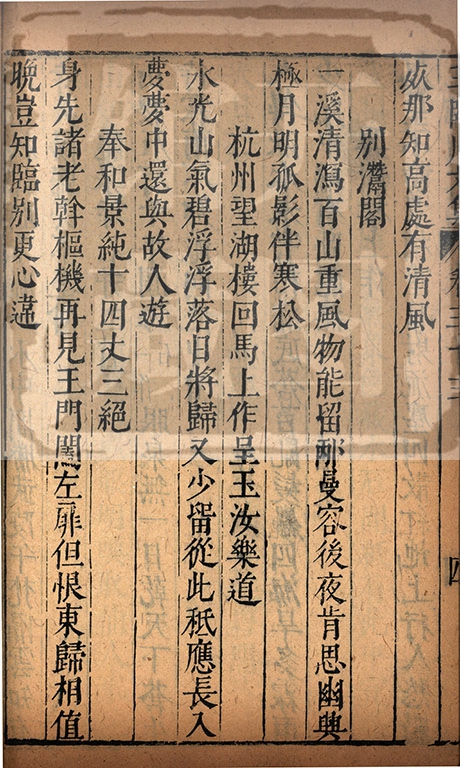 四
丛那知高處有清風
別灊閣
一溪清瀉百山重風物能留邴曼容後夜肯思幽興
極月明孤影伴寒松
杭州望湖樓回馬上作呈玉汝樂道
水光山氣碧浮浮落日將歸又少畱從此秪應長入
夢夢中還與故人遊
奉和景純十四丈三絕
身先諸老斡樞機再見王門闔左扉但恨東歸相值
晚豈知臨別更心違